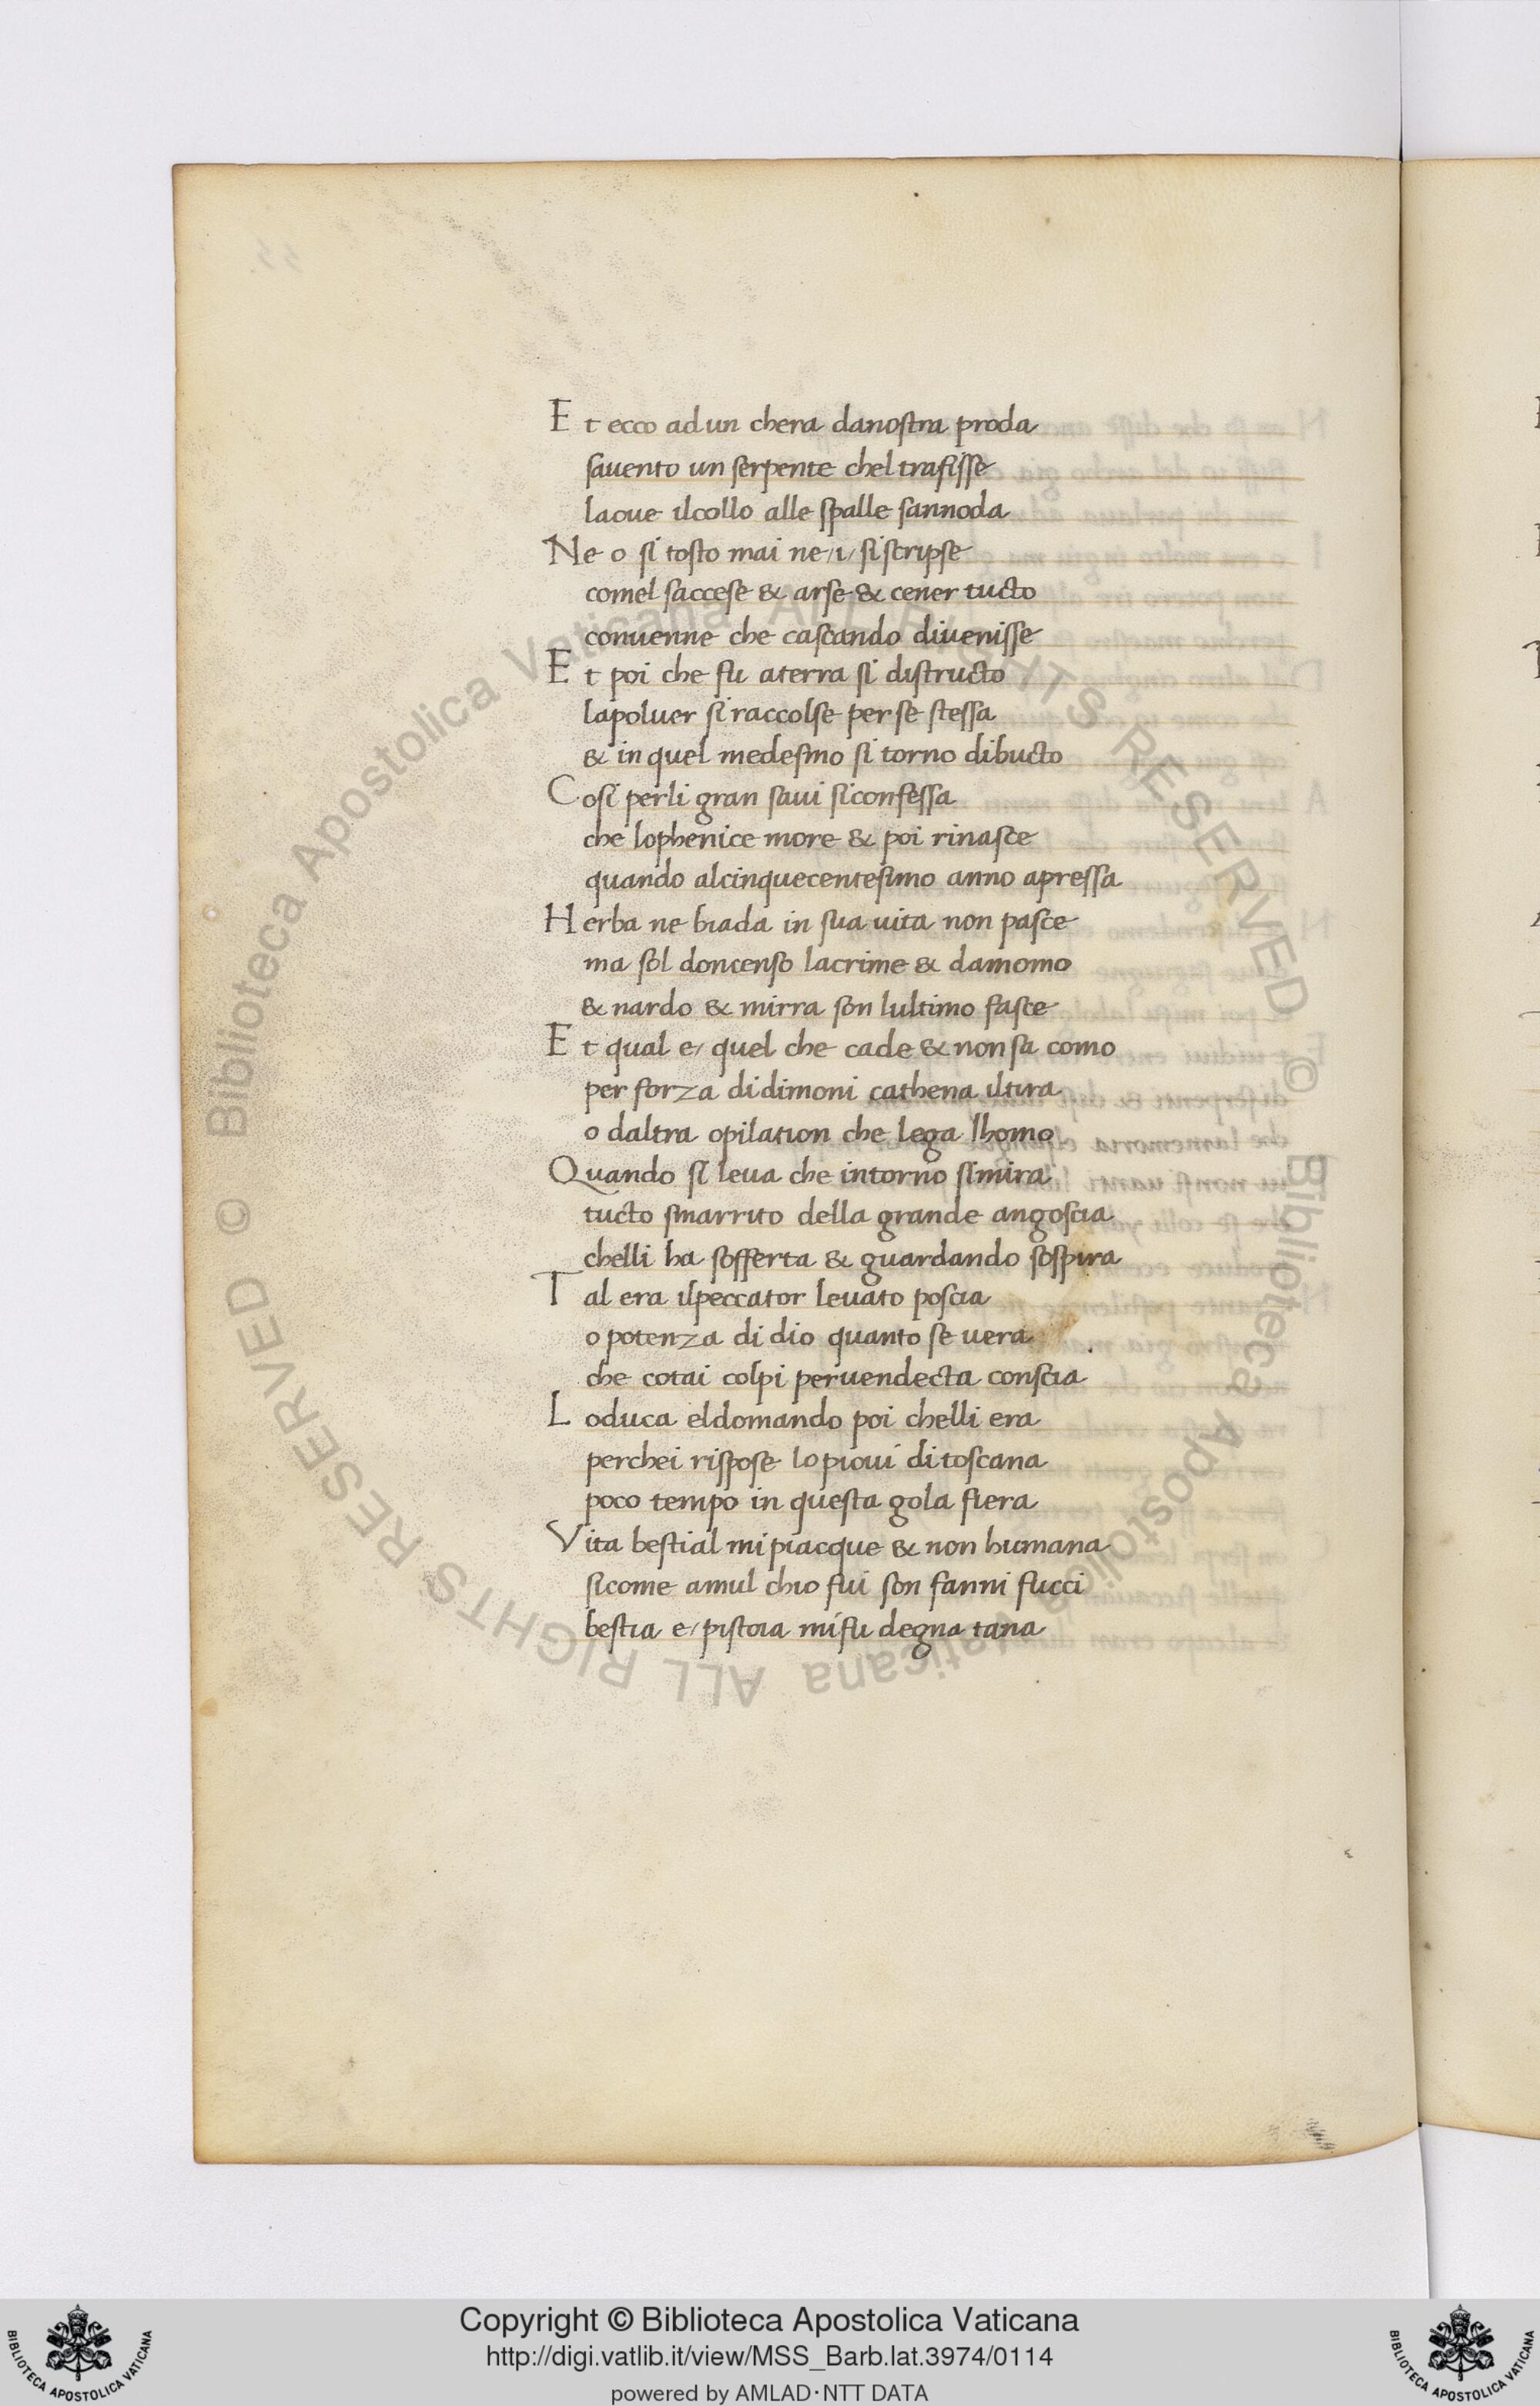 Et ecco ad un chera danostra proda
sauento un serpente chel trafisse
laoue ilcollo alle spalle sannoda
Ne o si tosto mai ne /i/ si scripse
comel saccese & arse & cener tucto
conuenne che cascando diuenisse
Et poi che fu aterra si distructo
lapoluer si raccolse per se stessa
& in quel medesmo si torno dibucto
Cosi perli gran saui siconfessa
che lophenice more & poi rinasce
quando alcinquecentesimo anno apressa
Herba ne biada in sua uita non pasce
ma sol doncenso lacrime & damomo
& nardo & mirra son lultimo fasce
Et qual e/ quel che cade & non sa como
per forza di dimoni cathena iltira
o daltra opilation che lega lhomo
Quando si leua che intorno simira
tucto smarrito della grande angoscia
chelli ha sofferta & guardando sospira
Tal era ilpeccator leuato poscia
o potenza di dio quanto se uera
che cotai colpi peruendecta conscia
Loduca eldomando poi chelli era
perchei rispose lo pioui di toscana
poco tempo in questa gola fiera
Vita bestial mi piacque & non humana
sicome amul chio fui son fanni fucci
bestia e/ pistoia mi fu degna tana
© Biblioteca Apostolica Vaticana ALL RIGHTS RESERVED © Biblioteca Apostolica Vaticana ALL RIGHTS RESERVED
Copyright © Biblioteca Apostolica Vaticana
http://digi.vatlib.it/view/MSS_Barb.lat.3974/0114
powered by AMLAD·NTT DATA
BIBLIOTECA APOSTOLICA VATICANA
BIBLIOTECA APOSTOLICA VATICANA